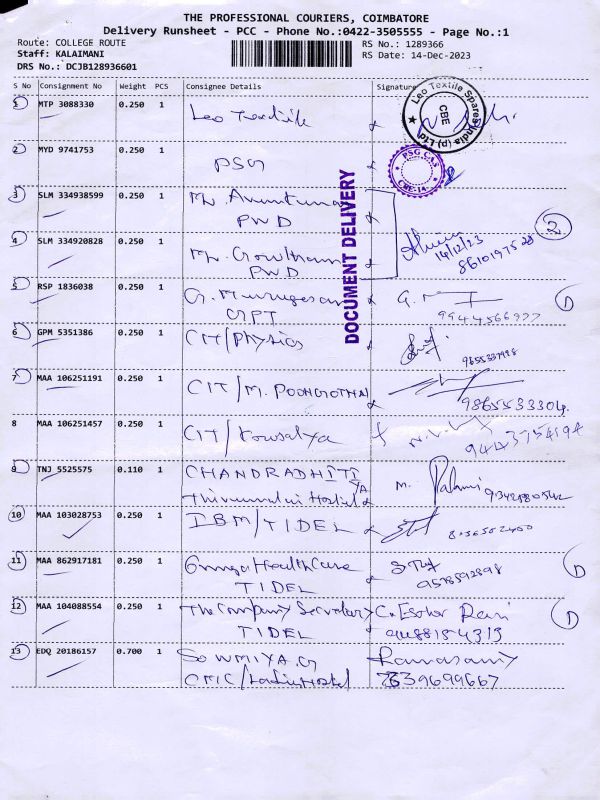 THE PROFESSIONAL COURIERS, COIMBATORE
Delivery Runsheet - PCC - Phone No.:0422-3505555 - Page No.:1
Route: COLLEGE ROUTE
Staff: KALAIMANI
DRS No.: DCJB128936601
RS No.: 1289366
RS Date: 14-Dec-2023
S No Consignment No Weight PCS Consignee Details Signature
1 MTP 3088330 0.250 1 Leo Textile
Leo Textile Spares India (P) Ltd
CBE
2 MYD 9741753 0.250 1 PSG
PSG CAS
CBE-14
DOCUMENT DELIVERY
3 SLM 334938599 0.250 1
PWD
4 SLM 334920828 0.250 1 Mr. Gowtham
PWD
14/12/23
2
5 RSP 1836038 0.250 1 G. Murugesan G.
GPT
1
6 GPM 5351386 0.250 1 CIT/Physics
7 MAA 106251191 0.250 1 CIT/M.
9865533304
8 MAA 106251457 0.250 1 CIT/Kousalya
9 TNJ 5525575 0.110 1 CHANDRADHITI M. Palani
YA
Thirumalai Hostel
10 MAA 103028753 0.250 1 IBM/TIDEL
11 MAA 862917181 0.250 1 Omega Healthcare
TIDEL
1
12 MAA 104088554 0.250 1 The Company Secretary
TIDEL
1
13 EDQ 20186157 0.700 1 SOWMIYA.G Ramasamy
CMC/Ladies Hostel 6339699667